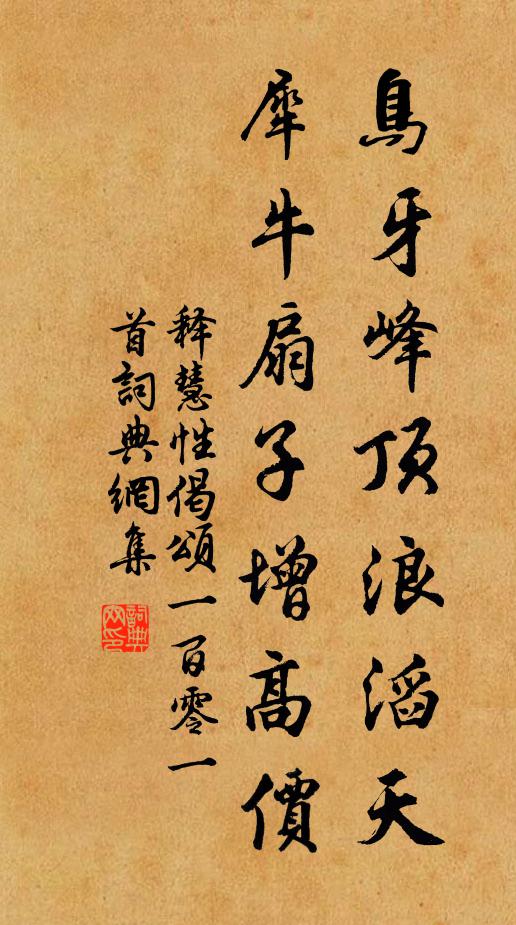 鳥牙峰頂浪滔天
犀牛扇子增高價
釋慧性偈頌一百零一
首詞典網集
詞典
网印